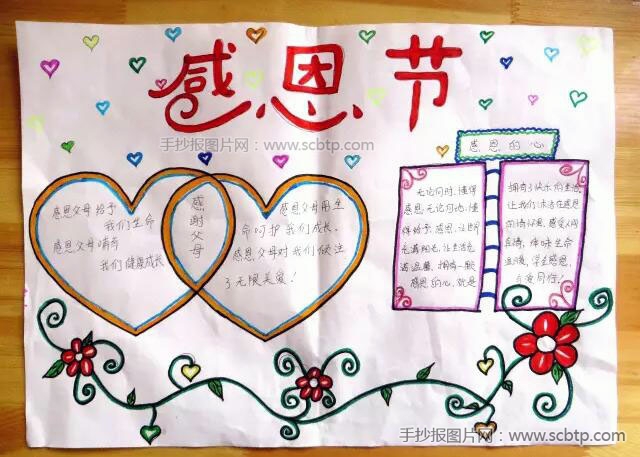 感恩节
手抄报图片网：www.scbtp.com
感恩父母给予
我们生命
感恩父母哺育
我们健康成长
感谢父母
感恩父母用生
命呵护我们成长。
感恩父母对我们倾注
了无限美爱！
感恩的心
无论何时，懂得
感恩，无论何地，懂
得给予感恩，让世界
充满阳光，让生活充
满温馨，拥有一颗
感恩的心，就是
拥有了快乐的生活
让我们沐浴在感恩
生命
学会感恩，
手抄报图片网：www.scbtp.com